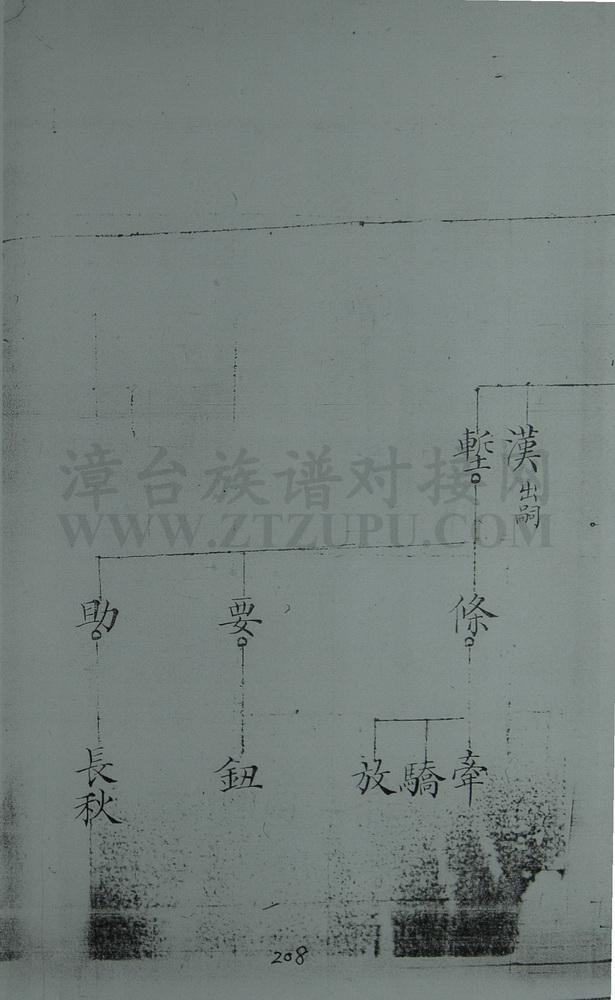 漢 出嗣
塹
條
要
助
牽
驕
放
鈕
長秋
208
漳台族谱对接网
WWW.ZTZUPU.COM